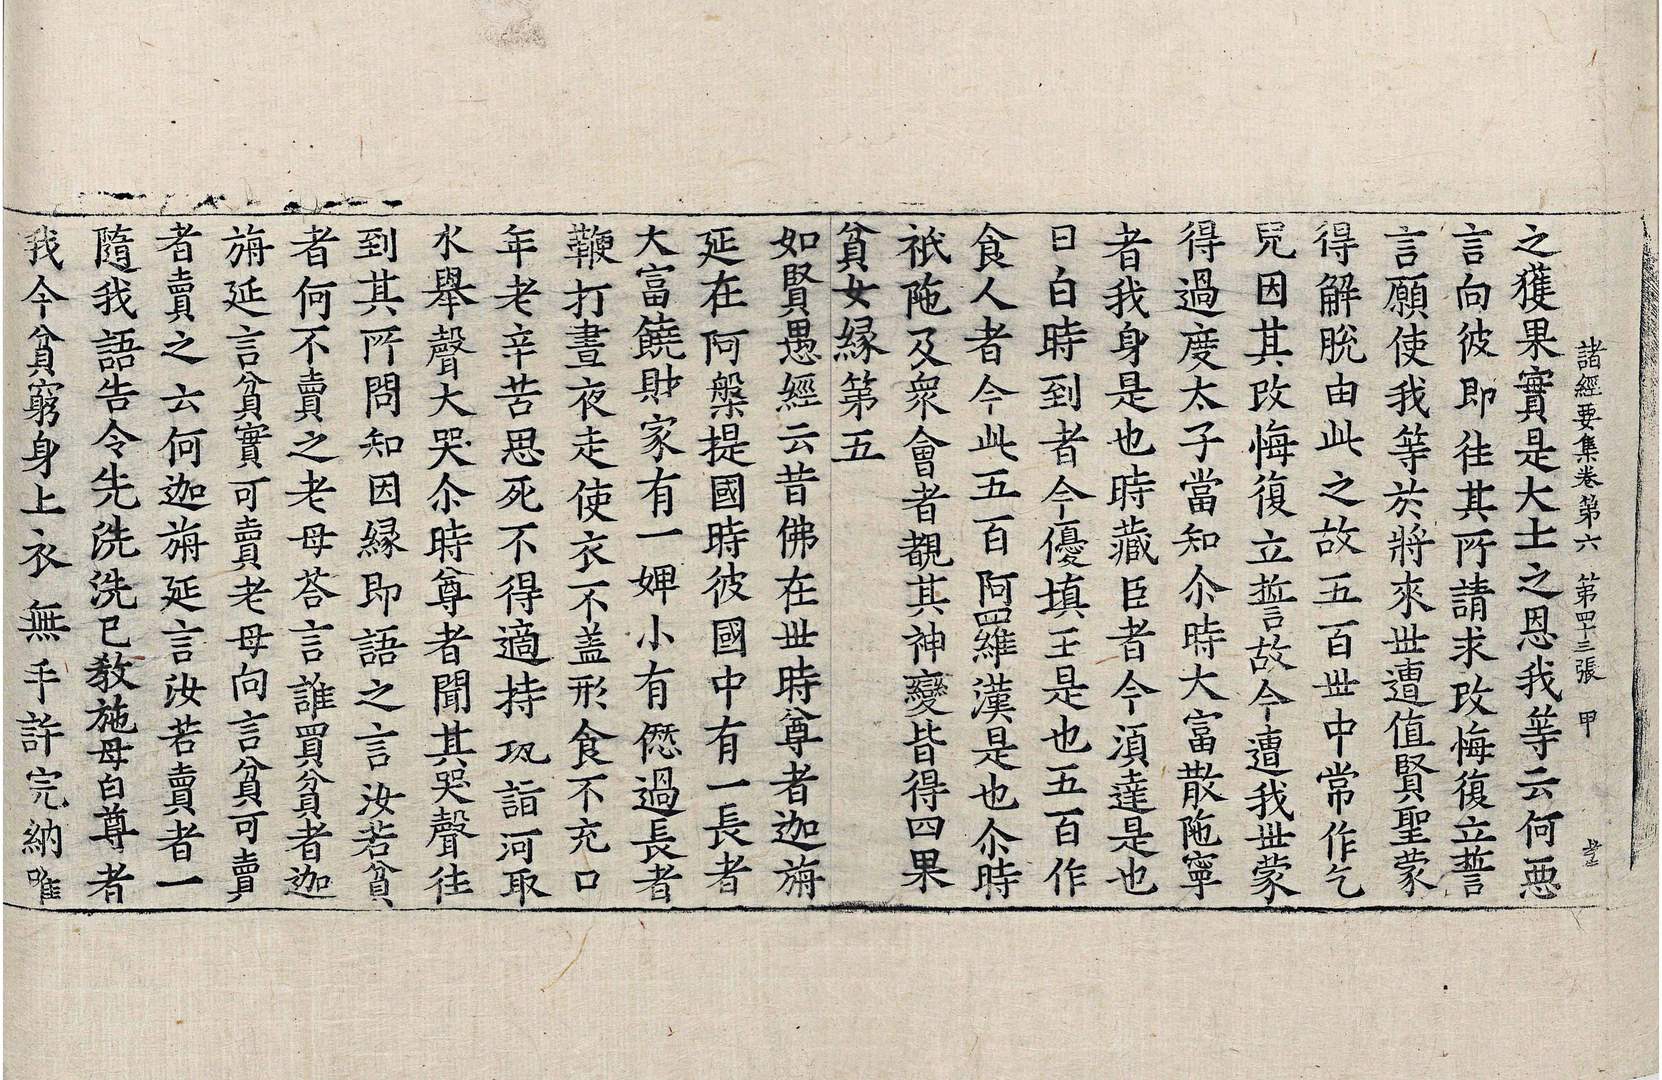 諸經要集卷第六　第四十三張　甲
之獲果實是大士之恩我等云何惡
言向彼即往其所請求改悔復立誓
言願使我等於將來世遭值賢聖蒙
得解脫由此之故五百世中常作乞
兒因其改悔復立誓故今遭我世蒙
得過度太子當知尒時大富散陁寧
者我身是也時藏臣者今須達是也
日白時到者今優填王是也五百作
食人者今此五百阿羅漢是也尒時
祇陁及眾會者覩其神變皆得四果
貧女緣第五
如賢愚經云昔佛在世時尊者迦旃
延在阿槃提國時彼國中有一長者
大富饒財家有一婢小有僽過長者
鞭打晝夜走使衣不盖形食不充口
年老辛苦思死不得適持瓨詣河取
水舉聲大哭尒時尊者聞其哭聲往
到其所問知因緣即語之言汝若貧
者何不賣之老母荅言誰買貧者迦
旃延言貧實可賣老母向言貧可賣
者賣之云何迦旃延言汝若賣者一
隨我語告令先洗洗已教施母白尊者
我今貧窮身上衣無手許完納唯